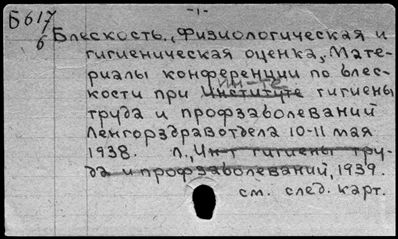 -1-
Б617
б Блескость., Физиологическая и
гигиеническая оценка, Мате-
риалы конференции по блес-
ин-те
кости при Институте гигиены
труда и профзаболеваний
Ленгорздравотдела 10-11 мая
1938. Л., Ин-т гигиены тру-
да и профзаболеваний, 1939.
см. след. карт.